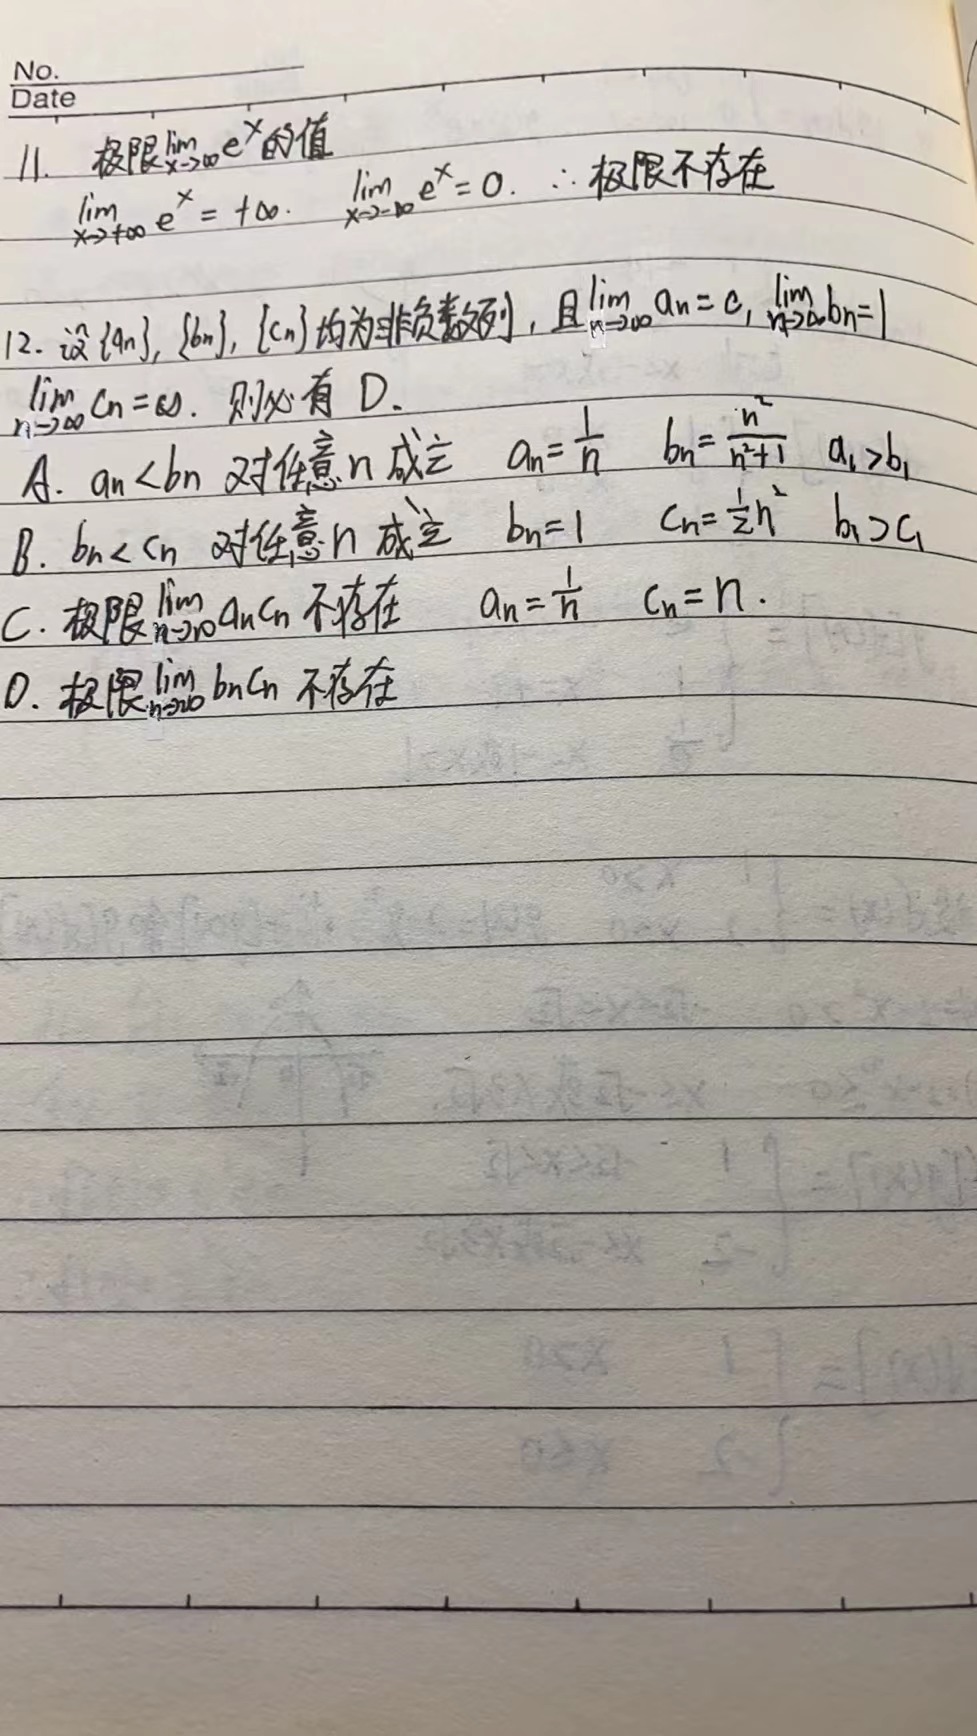 No.
Date
11. 极限 lim x→∞ e^x 的值
lim x→+∞ e^x = +∞. lim x→-∞ e^x = 0. ∴ 极限不存在
12. 设{an}, {bn}, {cn}均为非负数列, 且 lim n→∞ an = 0, lim n→∞ bn = 1
lim n→∞ cn = ∞. 则必有 D.
A. an < bn 对任意 n 成立 an = 1/n bn = n²/(n²+1) a₁ > b₁
B. bn < cn 对任意 n 成立 bn = 1 cn = 1/2 n² b₁ > c₁
C. 极限 lim n→∞ an cn 不存在 an = 1/n cn = n.
D. 极限 lim n→∞ bn cn 不存在